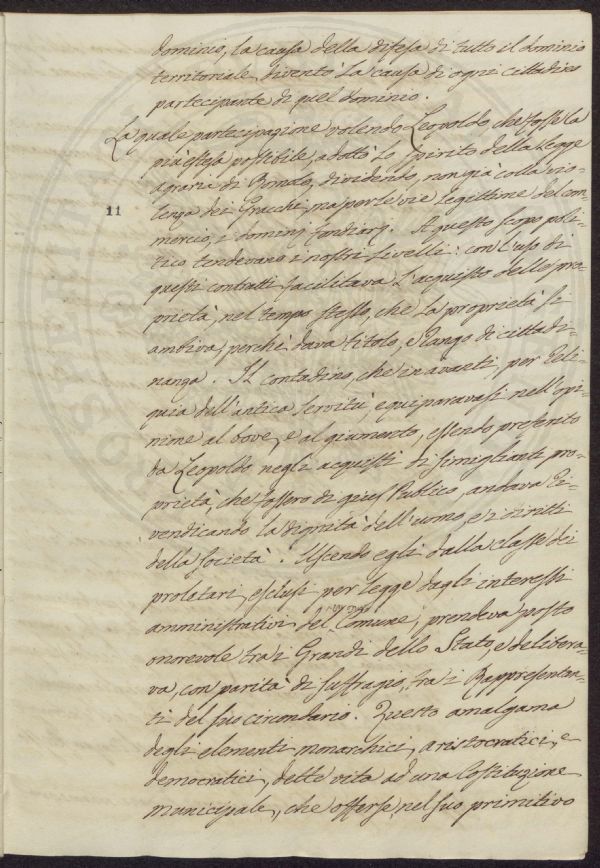 dominio, la causa della difesa di tutto il dominio
territoriale diventò la causa di ogni cittadino
partecipante di quel dominio.
La quale partecipazione volendo Leopoldo, che fosse la
più estesa possibile, adottò lo spirito della legge
agraria di Roma, dividendo, non già colla vio=
11
lenza dei Gracchi, ma per le vie legittime del com=
mercio, i dominj fondiarj. A questo scopo poli=
tico tendevano i nostri Livelli: con l'uso di
questi contratti facilitava l'acquisto delle pro=
prietà, nel tempo stesso, che la proprietà si
ambiva, perchè dava titolo, e Rango di cittadi=
nanza. Il contadino, che in avanti, per Reli=
quia dell'antica servitù, equiparavasi nell'opi=
nione al bove, e al giumento, essendo preferito
da Leopoldo negli acquisti di simiglianti pro=
prietà, che fossero di gius Publico, andava Ri=
vendicando la dignità dell'uomo, e i diritti
della società. Uscendo egli dalla classe dei
proletarj, esclusi per legge dagli interessi
amministrativi del Comune, prendeva posto
onorevole tra i Grandi dello Stato, e delibera=
va, con parità di suffragio, tra i Rappresentan=
ti del suo circondario. Questo amalgama
degli elementi monarchici, aristocratici, e
democratici, dette vita ad una Costituzione
Municipale, che offerse, nel suo primitivo